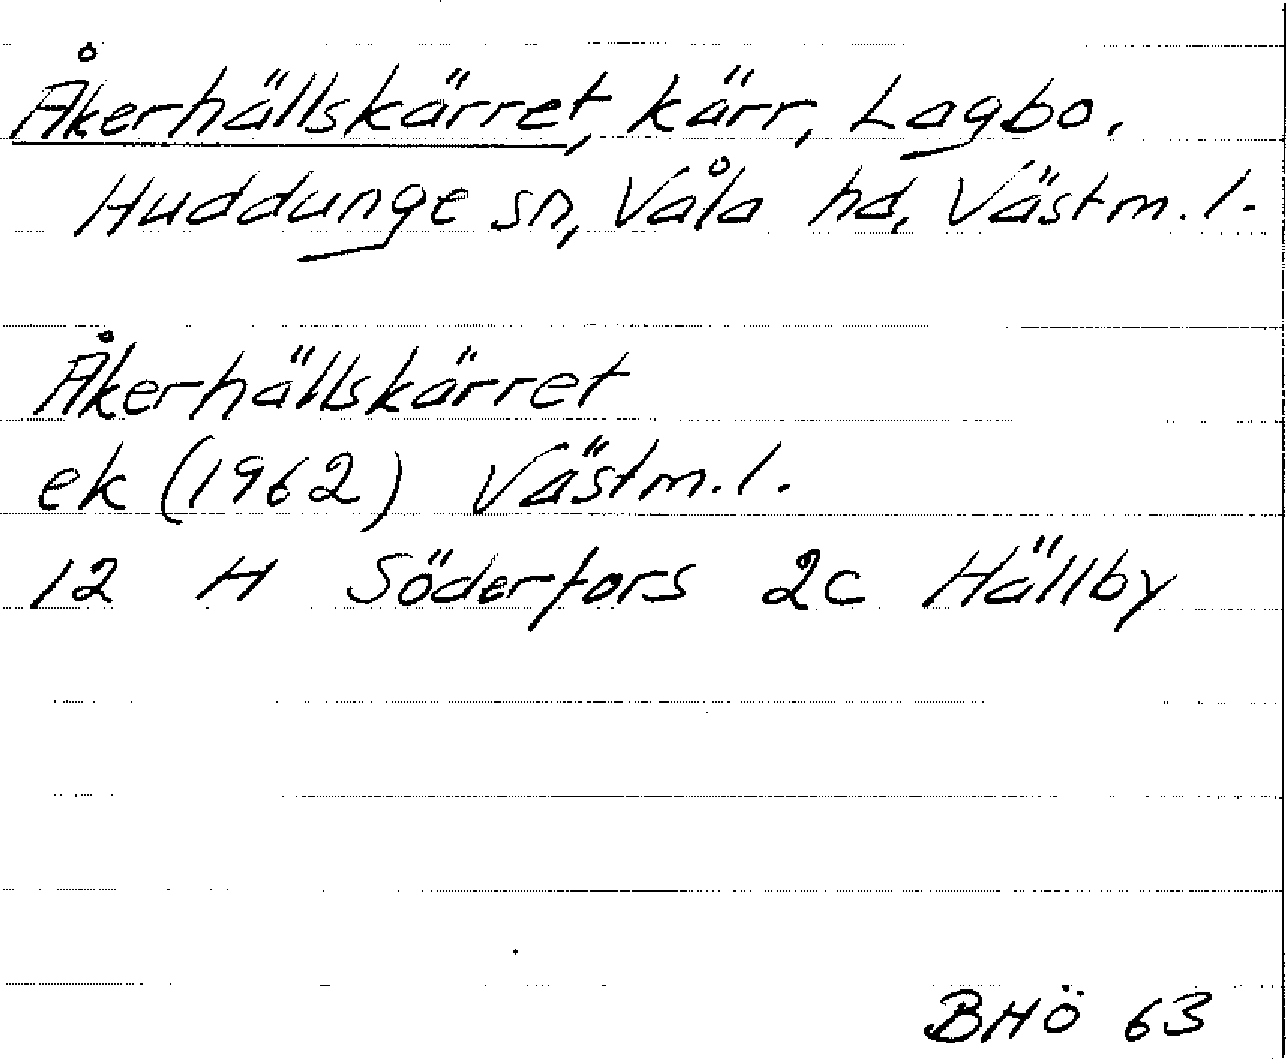 Åkerhällskärret, kärr, Lagbo.
Huddunge sn, Våla hd, Västm.l.
Åkerhällskärret
ek (1962) Västm.l.
12 H Söderfors 2c Hällby
BHÖ 63